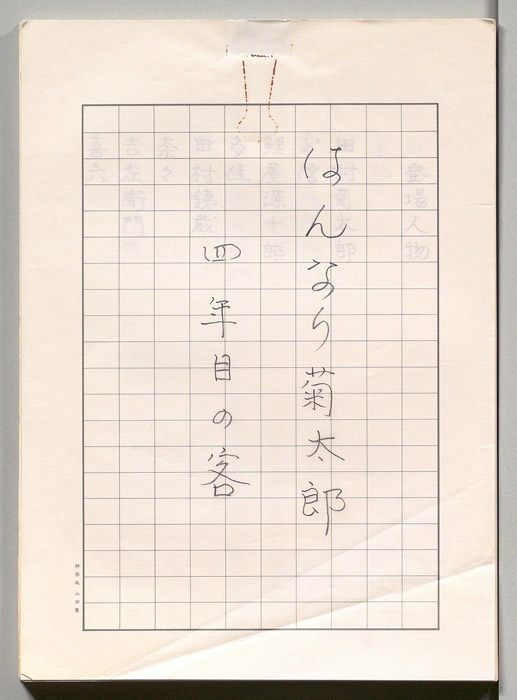 はんなり菊太郎
四年目の客
登場人物
田村菊太郎
鯉屋源十郎
多佳
田村銕蔵
奈々
吉左衛門
喜六
神楽坂 山田製